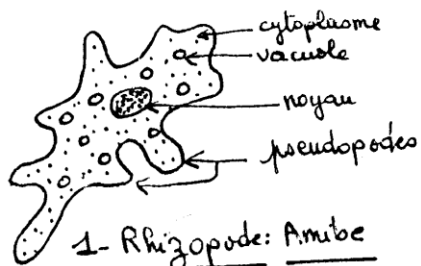 cytoplasme
vacuole
noyau
pseudopodes
1- Rhizopode: Amibe